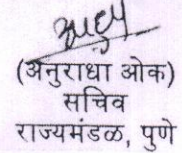 (अनुराधा ओक)
सचिव
राज्यमंडळ, पुणे